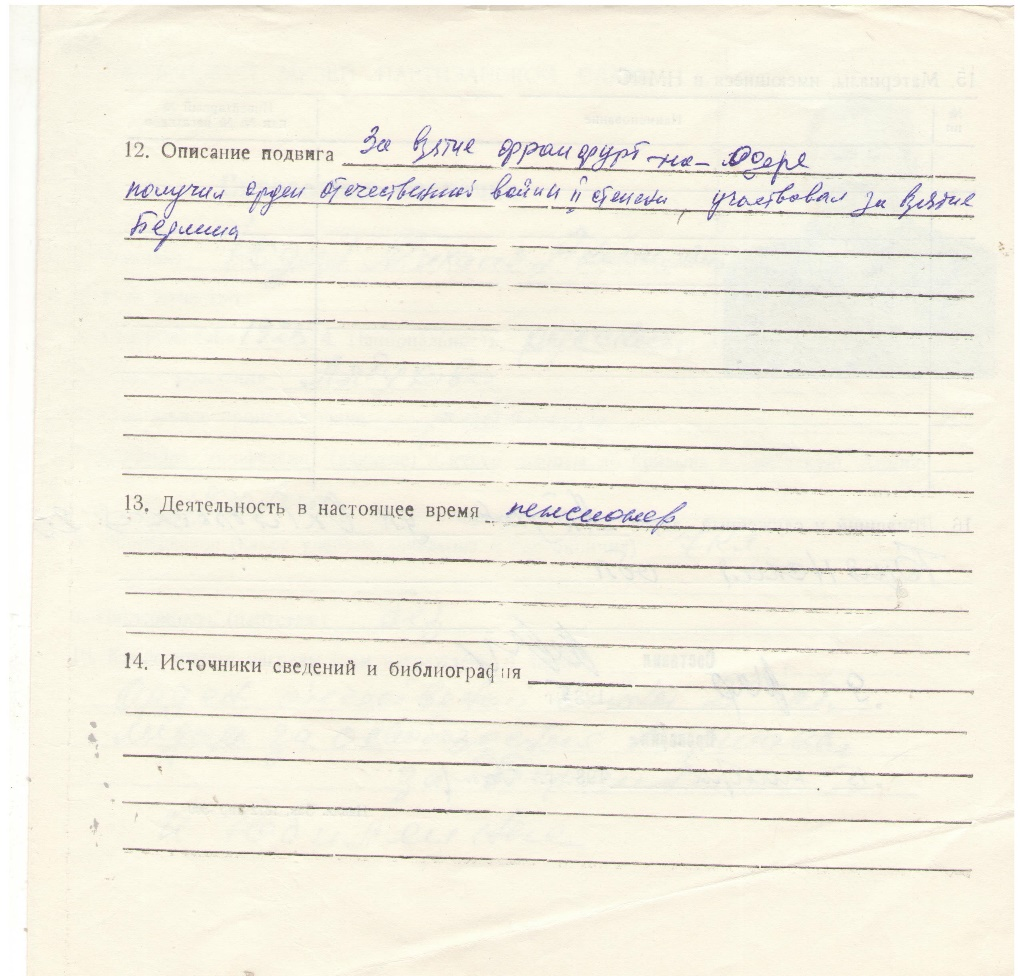 12. Описание подвига За взятие франфурт-на-Одере
получил орден отечественной войны II степени, участвовал за взятие
Берлина
13. Деятельность в настоящее время пенсионер
14. Источники сведений и библиография